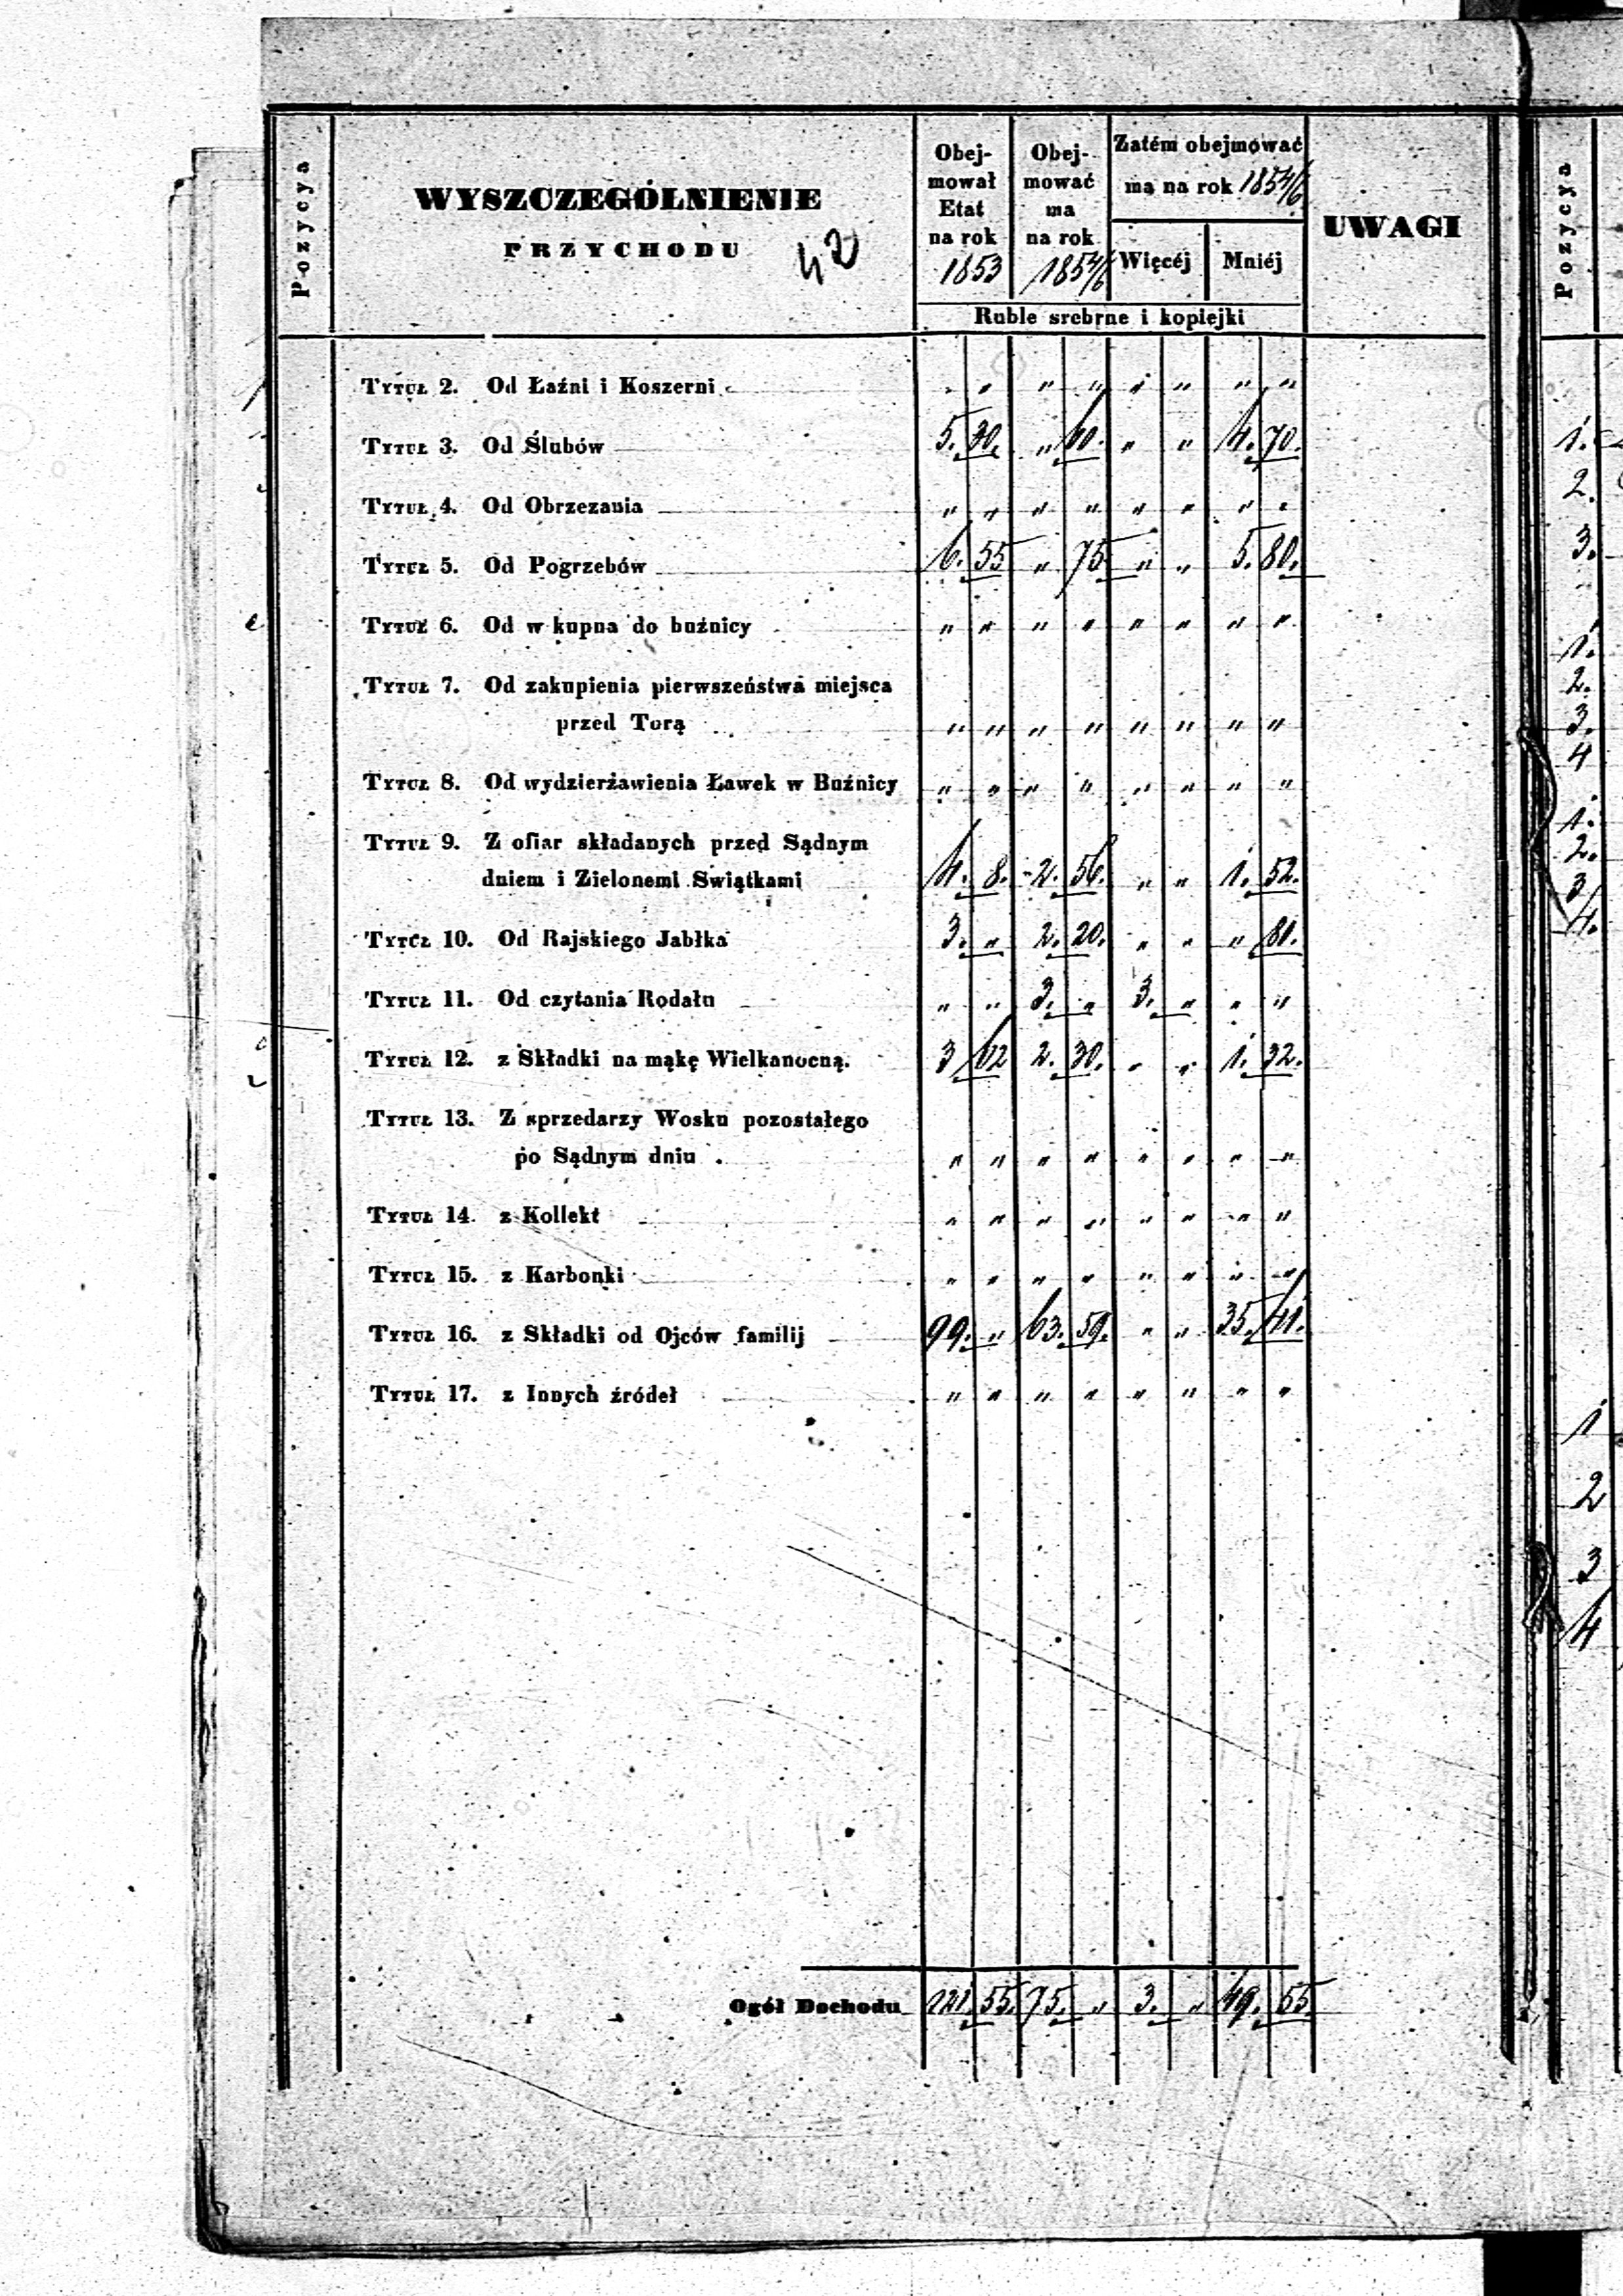 Pozycya
WYSZCZEGÓLNIENIE
PRZYCHODU
42
Obej-
mował
Etat
na rok
1853
Obej-
mować
ma
na rok
1854/6
Zatém obejmować
ma na rok 1854/6
Więcéj Mniéj
Ruble srebrne i kopiejki
UWAGI
Tytuł 2. Od Łaźni i Koszerni „ „ „ „ „ „ „ „
Tytuł 3. Od Ślubów 5. 30. „ 60. „ „ 4. 70.
Tytuł 4. Od Obrzezania „ „ „ „ „ „ „ „
Tytuł 5. Od Pogrzebów 6. 55 „ 75 „ „ 5. 80.
Tytuł 6. Od w kupna do buźnicy „ „ „ „ „ „ „ „
Tytuł 7. Od zakupienia pierwszeństwa miejsca
przed Torą „ „ „ „ „ „ „ „
Tytuł 8. Od wydzierżawienia Ławek w Buźnicy „ „ „ „ „ „ „ „
Tytuł 9. Z ofiar składanych przed Sądnym
dniem i Zielonemi Swiątkami 4. 8. 2. 56. „ „ 1. 52.
Tytuł 10. Od Rajskiego Jabłka 3. „ 2. 20. „ „ „ 80.
Tytuł 11. Od czytania Rodału „ „ 3. „ 3. „ „ „
Tytuł 12. z Składki na mąkę Wielkanocną. 3 62 2. 30. „ „ 1. 32.
Tytuł 13. Z sprzedarzy Wosku pozostałego
po Sądnym dniu . „ „ „ „ „ „ „ „
Tytuł 14. z Kollekt „ „ „ „ „ „ „ „
Tytuł 15. z Karbonki „ „ „ „ „ „ „ „
Tytuł 16. z Składki od Ojców familij 99. „ 63. 59. „ „ 35. 41.
Tytuł 17. z Innych źródeł „ „ „ „ „ „ „ „
Ogół Dochodu 121. 55. 75. „ 3. „ 49. 55
Pozycya
1.
2.
3.
1.
2.
3.
4
1.
2.
3
4.
1
2
3
4